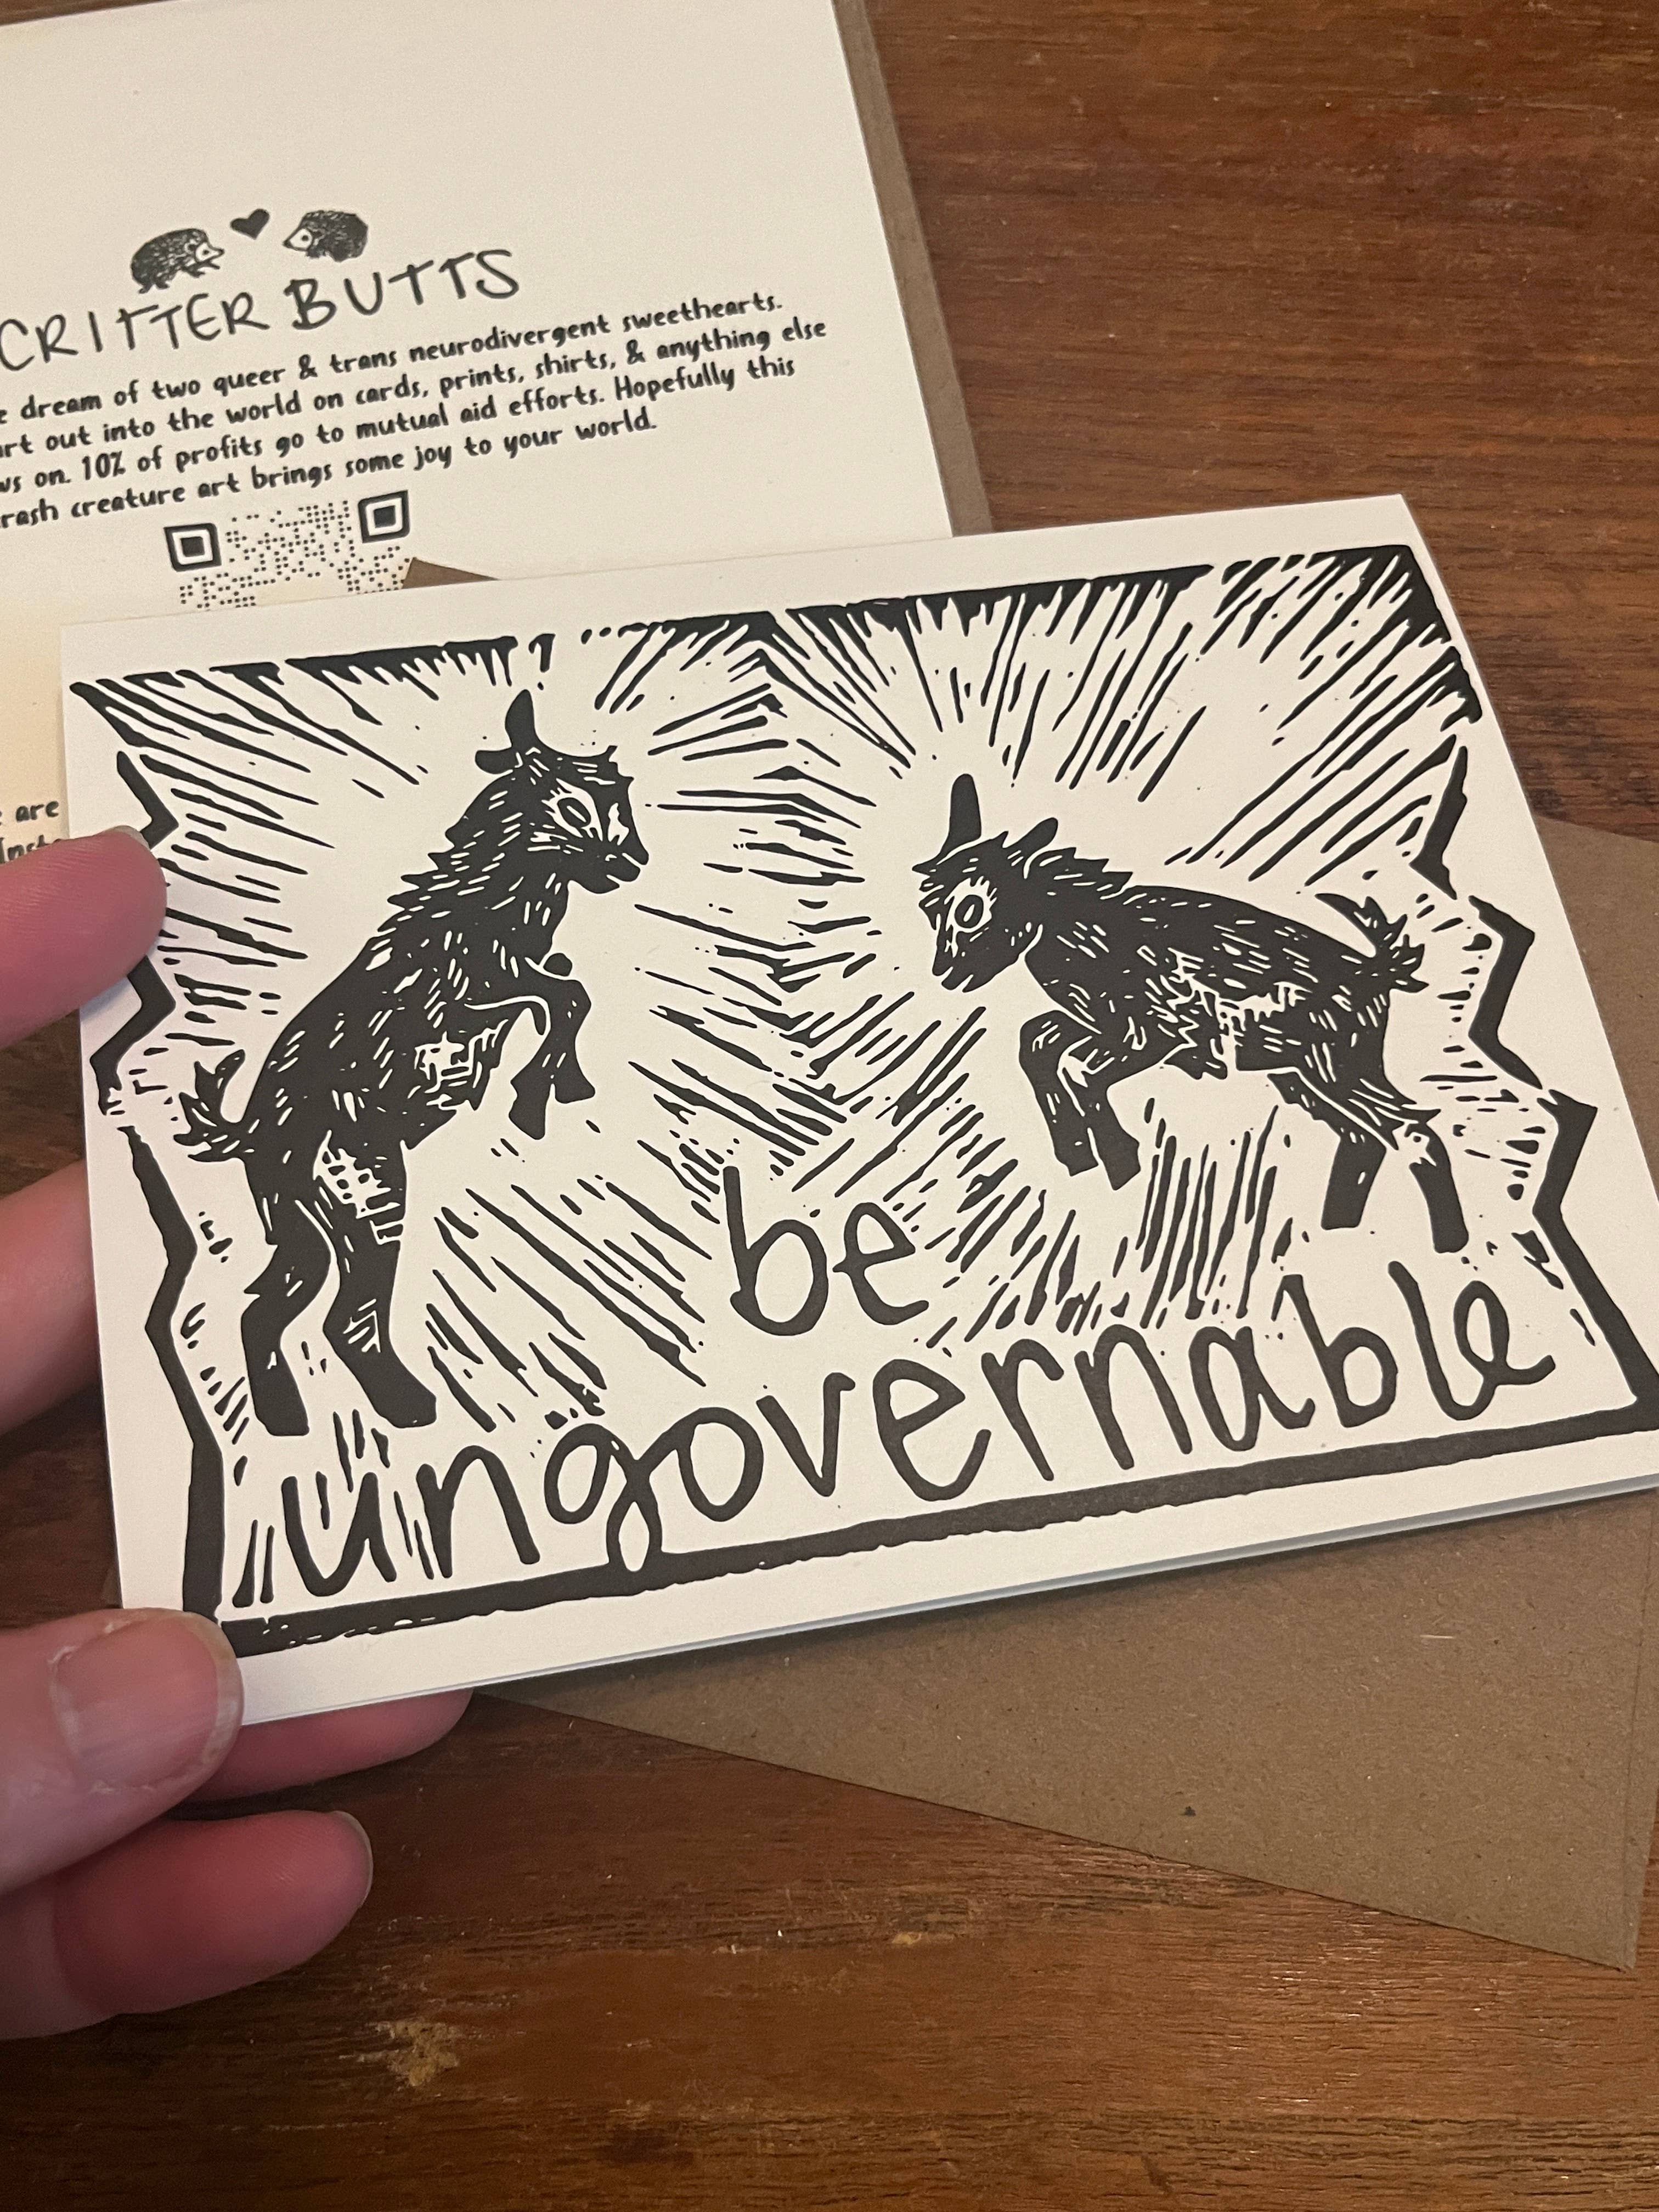 CRITTER BUTTS
dream of two queer & trans neurodivergent sweethearts.
out into the world on cards, prints, shirts, & anything else
on. 10% of profits go to mutual aid efforts. Hopefully this
creature art brings some joy to your world.
are
be
ungovernable